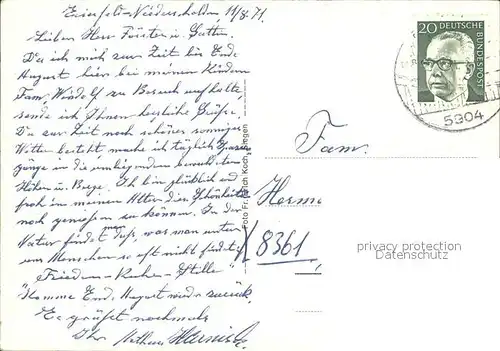 Eiserfeld-Niederschelden, 11/8. 71.
Lieber Herr Förster u. Gattin.
Da ich mich zur Zeit bis Ende
August hier bei meinen Kindern
Fam. zu Besuch aufhalte,
sende ich Ihnen herzliche Grüße.
Da zur Zeit noch schönes sonniges
Wetter besteht, mache ich täglich Spazier
gänge in die umliegenden bewaldeten
Höhen u. Berge. Ich bin glücklich und
froh in meinem Alter dies Schönheiten
noch genießen zu können. In der
Natur findet man das, was man unter
uns Menschen so oft nicht findet,
Frieden - Ruhe - Stille"
"Komme Ende August wieder zurück.
Es grüßt nochmals
Ihr
20 DEUTSCHE
BUNDESPOST
5304
Foto Fr. Koch, Siegen
Fam.
8361
privacy protection
watermark